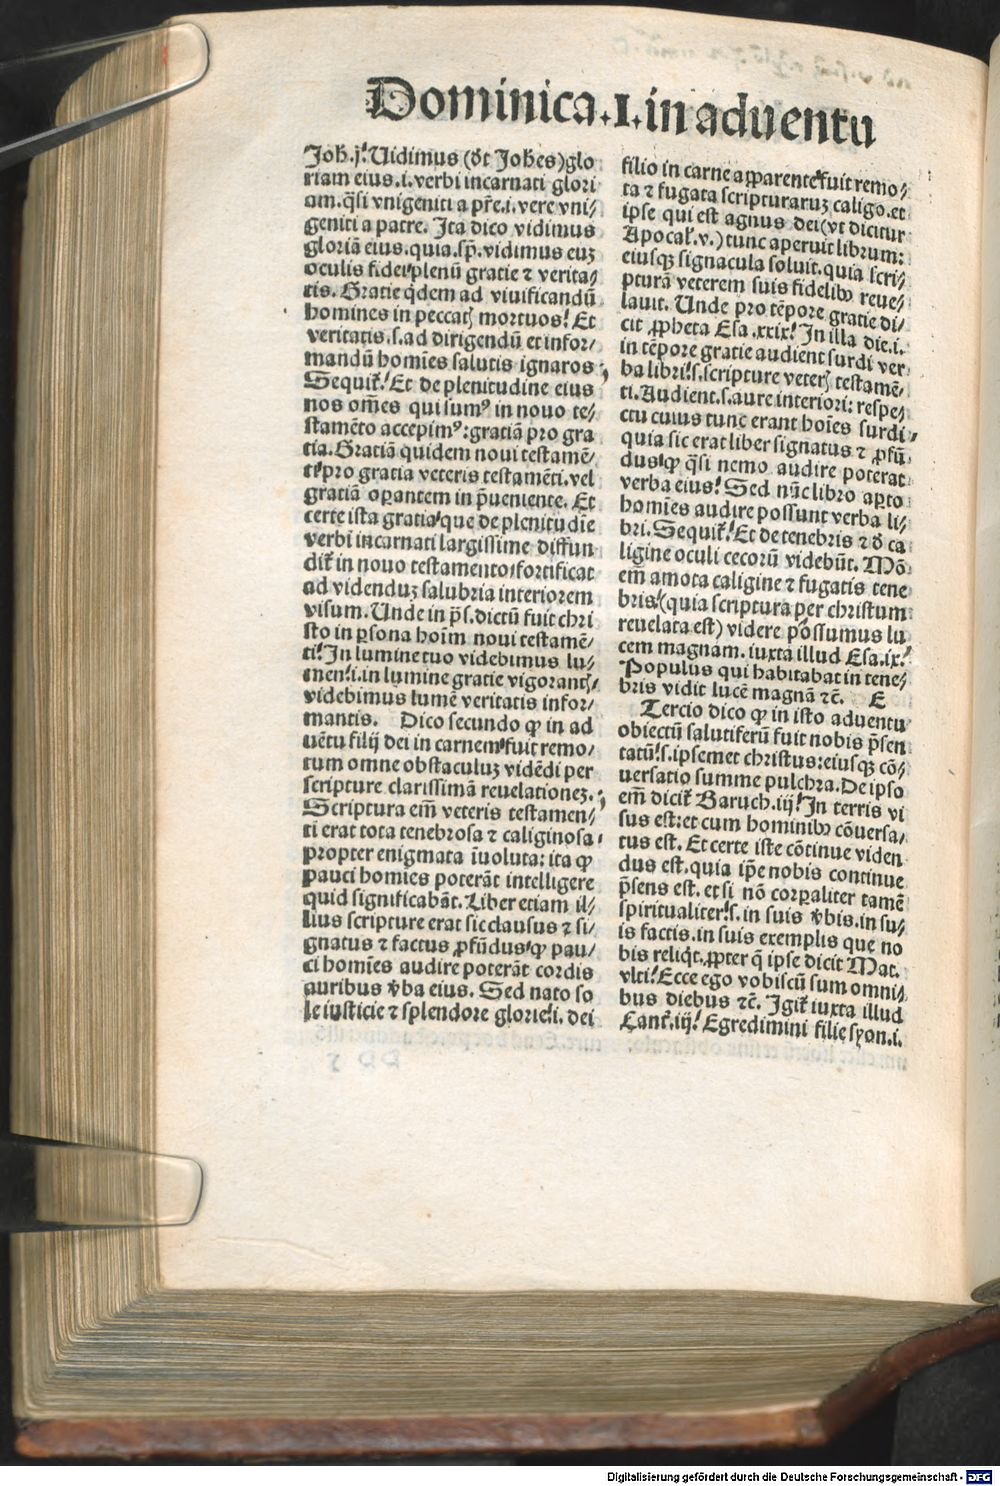 Dominica .I. in aduentu
Joh̄.j. Uidimus (d̄t Joh̄es) glo
riam eius .i. verbi incarnati glori
am. q̄si vnigeniti a pr̄e .i. vere vni⸗
geniti a patre. Ita dico vidimus
gloriā eius. quia .sp̄. vidimus euꝫ
oculis fidei plenū gratie ⁊ verita⸗
tis. Gratie q̇dem ad viuificandū
homines in peccatꝭ mortuos! Et
veritatis .s. ad dirigendū et infor⸗
mandū homīes salutis ignaros
Sequit̄! Et de plenitudine eius
nos om̄es qui sumꝰ in nouo te⸗
stamēto accepimꝰ: gratiā pro gra
tia. Gratiā quidem noui testamē⸗
ti pro gratia veteris testamēti. vel
gratiā oꝑantem in p̄ueniente. Et
certe ista gratia que de plenitudīe
verbi incarnati largissime diffun
dit̄ in nouo testamento fortificat
ad videnduꝫ salubria interiorem
visum. Unde in p̄s. dictū fuit chri
sto in ꝑsona hoīm noui testamē⸗
ti! In lumine tuo videbimus lu⸗
men! .i. in lumine gratie vigorantꝭ
videbimus lumē veritatis infor⸗
mantis. Dico secundo ꝙ in ad
uētu filij dei in carnem fuit remo⸗
tum omne obstaculuꝫ vidēdi per
scripture clarissimā reuelationeꝫ.
Scriptura em̄ veteris testamen⸗
ti erat tota tenebrosa ⁊ caliginosa
propter enigmata īuoluta: ita ꝙ
pauci homīes poterāt intelligere
quid significabāt. Liber etiam il⸗
lius scripture erat sic clausus ⁊ si⸗
gnatus ⁊ factus ꝓfūdus ꝙ pau⸗
ci homīes audire poterāt cordis
auribus v̄ba eius. Sed nato so
le iusticie ⁊ splendore glorie! .i. dei
filio in carne apparente fuit remo⸗
ta ⁊ fugata scripturaruꝫ caligo. et
ipse qui est agnus dei (vt dicitur
Apocal̄. v.) tunc aperuit librum:
eiusqꝫ signacula soluit. quia scri⸗
pturā veterem suis fidelibꝰ reue⸗
lauit. Unde pro tēpore gratie di⸗
cit ꝓpheta Esa .xxix! In illa die .i.
in tēpore gratie audient surdi ver
ba libri! .s. scripture veterꝭ testamē⸗
ti. Audient .s. aure interiori: respe⸗
ctu cuius tunc erant hoīes surdi
quia sic erat liber signatus ⁊ ꝓfū⸗
dus ꝙ q̄si nemo audire poterat
verba eius! Sed nūc libro aꝑto
homīes audire possunt verba li⸗
bri. Sequit̄! Et de tenebris ⁊ d̄ ca
ligine oculi cecorū videbūt. Mō
em̄ amota caligine ⁊ fugatis tene
bris (quia scriptura per christum
reuelata est) videre possumus lu
cem magnam. iuxta illud Esa. ix!
Populus qui habitabat in tene⸗
bris vidit lucē magnā ⁊c̄. E
Tercio dico ꝙ in isto aduentu
obiectū salutiferū fuit nobis p̄sen
tatū! .s. ipsemet christus: eiusqꝫ cō⸗
uersatio summe pulchra. De ipso
em̄ dicit̄ Baruch. iij! In terris vi
sus est: et cum hominibꝰ cōuersa⸗
tus est. Et certe iste cōtinue viden
dus est. quia ip̄e nobis continue
p̄sens est. et si nō corꝑaliter tamē
spiritualiter! .s. in suis v̄bis. in su⸗
is factis. in suis exemplis que no
bis reliq̇t. ꝓpter q̄ ipse dicit Mat.
vlti! Ecce ego vobiscū sum omni⸗
bus diebus ⁊c̄. Igit̄ iuxta illud
Cant̄. iij! Egredimini filie syon .i.
Digitalisierung gefördert durch die Deutsche Forschungsgemeinschaft - DFG